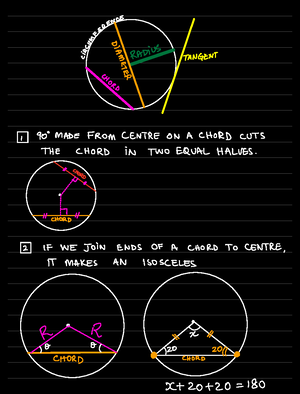 CIRCUMFERENCE
DIAMETER
RADIUS
CHORD
TANGENT
1 90° MADE FROM CENTRE ON A CHORD CUTS
THE CHORD IN TWO EQUAL HALVES.
CHORD
CHORD
2 IF WE JOIN ENDS OF A CHORD TO CENTRE,
IT MAKES AN ISOSCELES
R R x
θ θ 20 20
CHORD CHORD
x+20+20=180